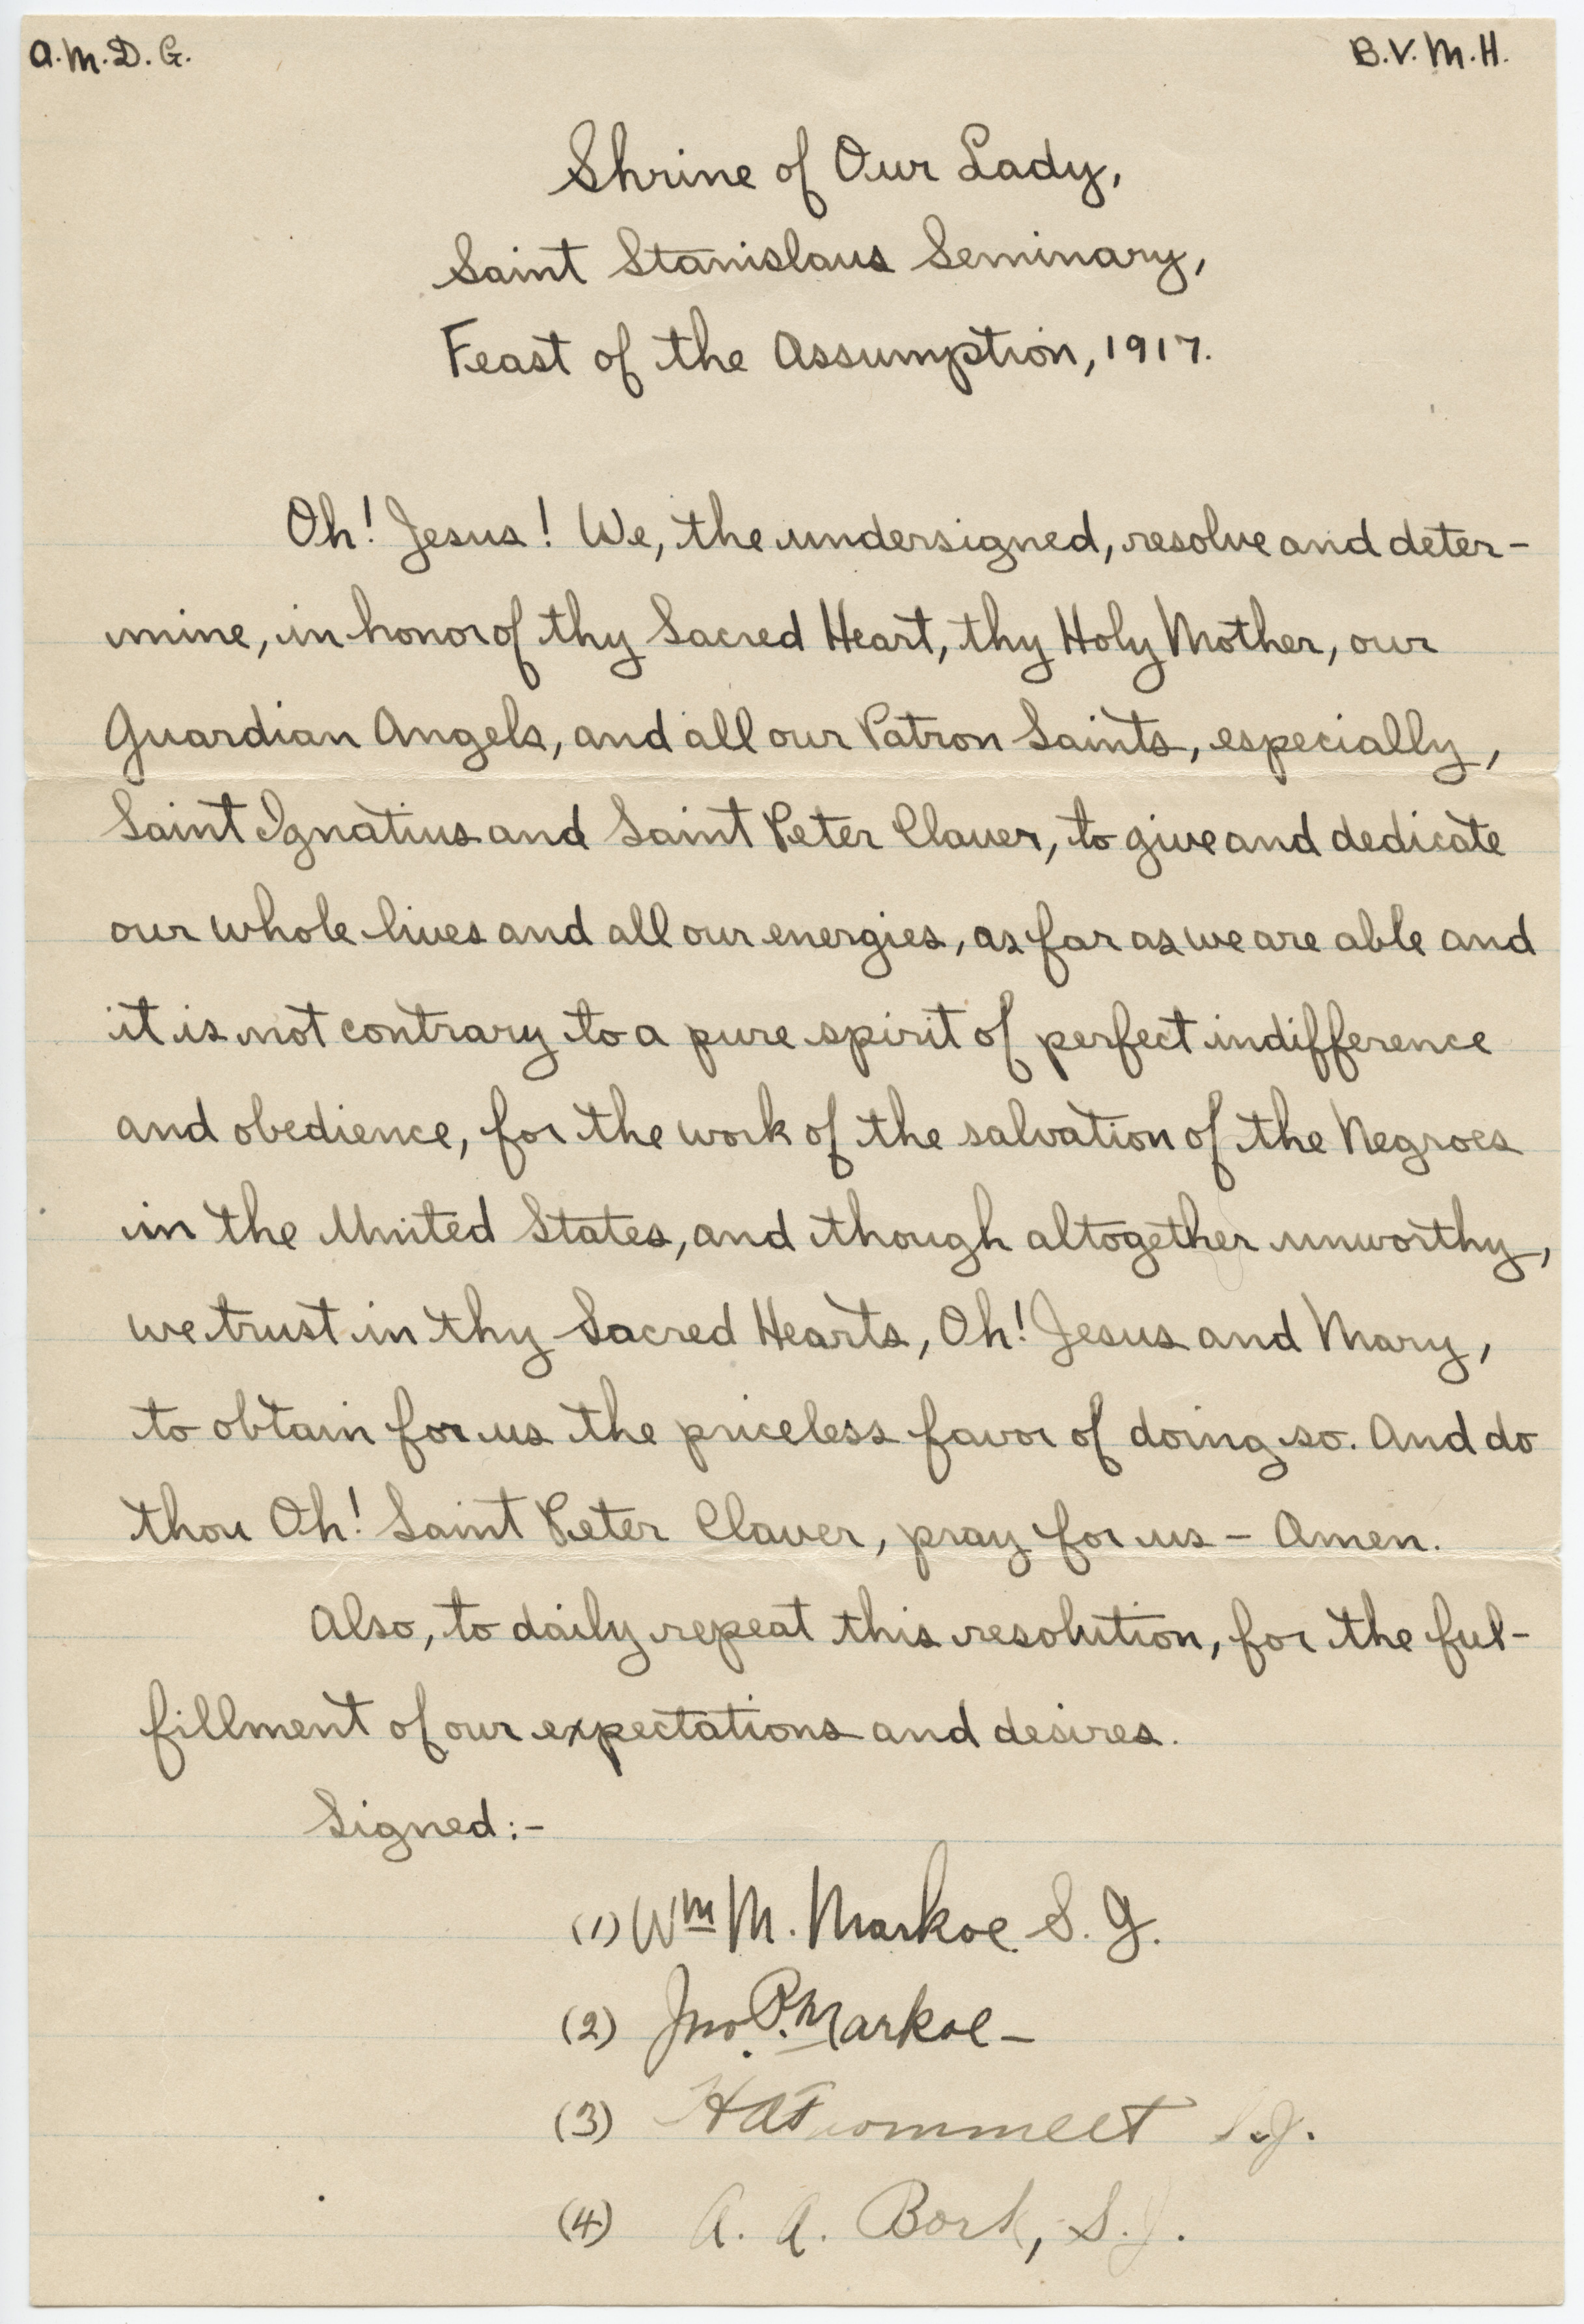 A.M.D.G. B.V.M.H.
Shrine of Our Lady,
Saint Stanislaus Seminary,
Feast of the Assumption, 1917.
Oh! Jesus! We, the undersigned, resolve and deter-
mine, in honor of thy Sacred Heart, thy Holy Mother, our
Guardian Angels, and all our Patron Saints, especially,
Saint Ignatius and Saint Peter Claver, to give and dedicate
our whole lives and all our energies, as far as we are able and
it is not contrary to a pure spirit of perfect indifference
and obedience, for the work of the salvation of the Negroes
in the United States, and though altogether unworthy,
we trust in thy Sacred Hearts, Oh! Jesus and Mary,
to obtain for us the priceless favor of doing so. And do
thou Oh! Saint Peter Claver, pray for us - Amen.
Also, to daily repeat this resolution, for the ful-
fillment of our expectations and desires.
Signed:-
(1) Wm M. Markoe S.J.
(2) Jno. P. Markoe-
(3) S.J.
(4) A. A. Bork, S.J.